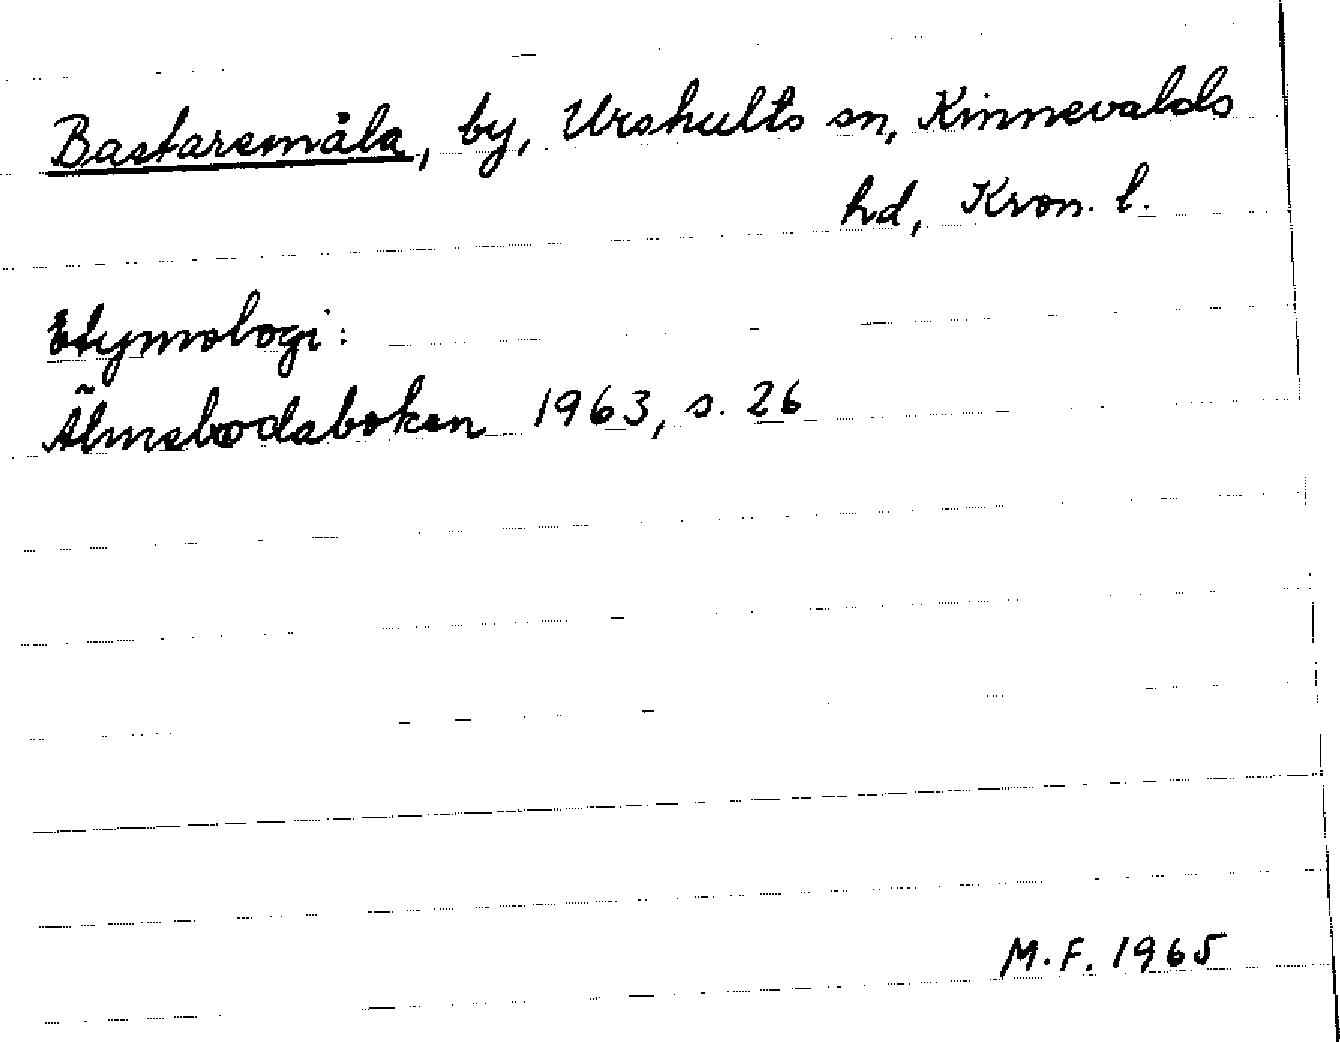 Bastaremåla, by, Urshults sn, Kinnevalds
hd, Kron. l.
Etymologi:
Älmebodaboken 1963, s. 26
M.F. 1965